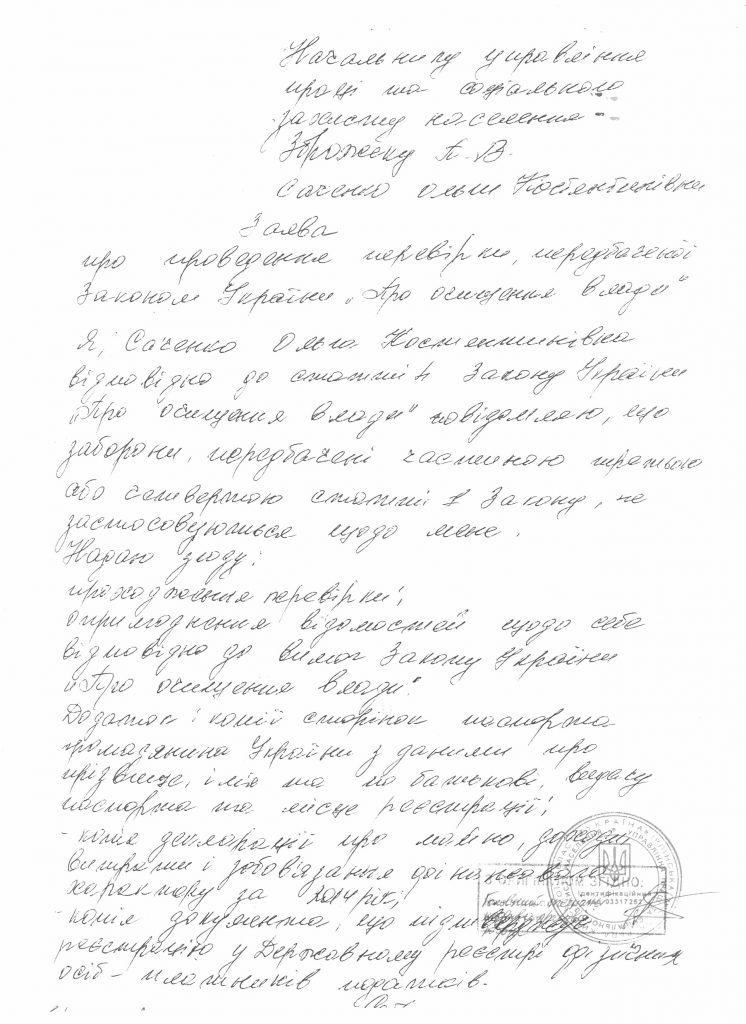 Начальнику управління
праці та соціального
захисту населення
А. В.
Саченко Ольги Костянтинівни
Заява
про проведення перевірки, передбаченої
Законом України „Про очищення влади"
Я, Саченко Ольга Костянтинівна
відповідно до статті 4 Закону України
„Про очищення влади" повідомляю, що
заборони, передбачені частиною третьою
або четвертою статті 1 Закону, не
застосовуються щодо мене.
Надаю згоду:
проходження перевірки;
оприлюднення відомостей щодо себе
відповідно до вимог Закону України
„Про очищення влади".
Додаток: копії сторінок паспорта
громадянина України з даними про
прізвище, ім'я та по батькові, видачу
паспорта та місце реєстрації;
- копія декларації про майно, доходи,
витрати і зобов'язання фінансового
характеру за 2014 рік;
- копія документа, що підтверджує
реєстрацію у Державному реєстрі фізичних
осіб - платників податків.
З ОРИГІНАЛОМ ЗГІДНО:
Ідентифікаційний
03317262